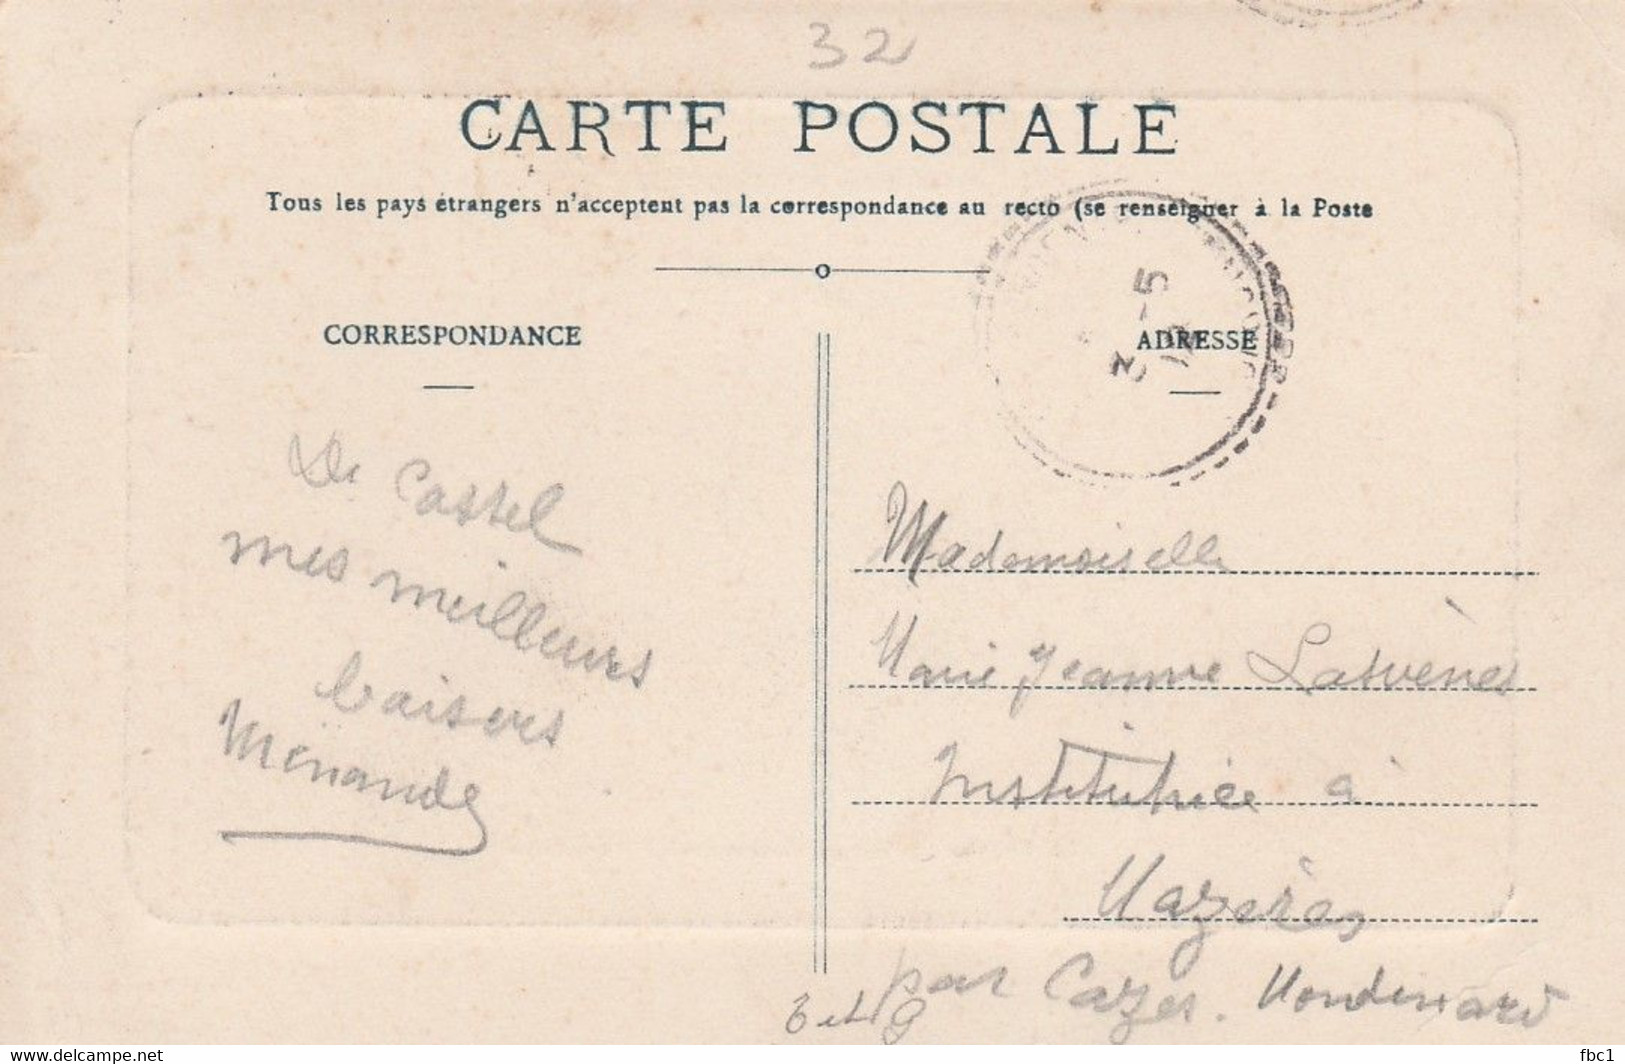 32
CARTE POSTALE
Tous les pays étrangers n'acceptent pas la correspondance au recto (se renseigner à la Poste
CORRESPONDANCE
ADRESSE
3 - 5
De Castel
mes meilleurs
baisers
Mademoiselle
Marie Jeanne Lasvènes
Institutrice à
Mazères
par Cazes. Mondenard
www.delcampe.net
fbc1